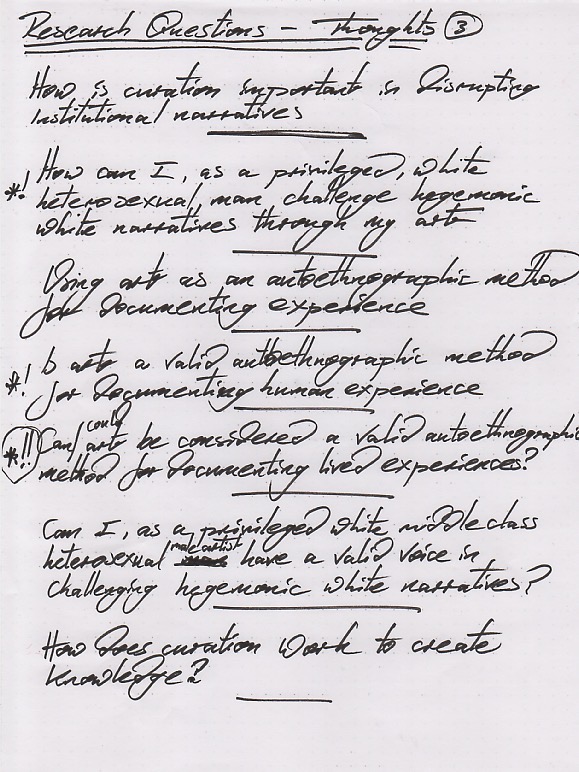 Research Questions – Thoughts 3
How is curation important in Disrupting
Institutional narratives
*! How can I, as a privileged, white
heterosexual, man challenge hegemonic
white narratives through my art
Using art as an autoethnographic method
for documenting experience
*! Is art a valid autoethnographic method
for documenting human experience
could
*!! Can/ art be considered a valid autoethnographic
method for documenting lived experiences?
Can I, as a privileged white middle class
male artist
heterosexual have a valid voice in
challenging hegemonic white narratives?
How does curation work to create
knowledge?